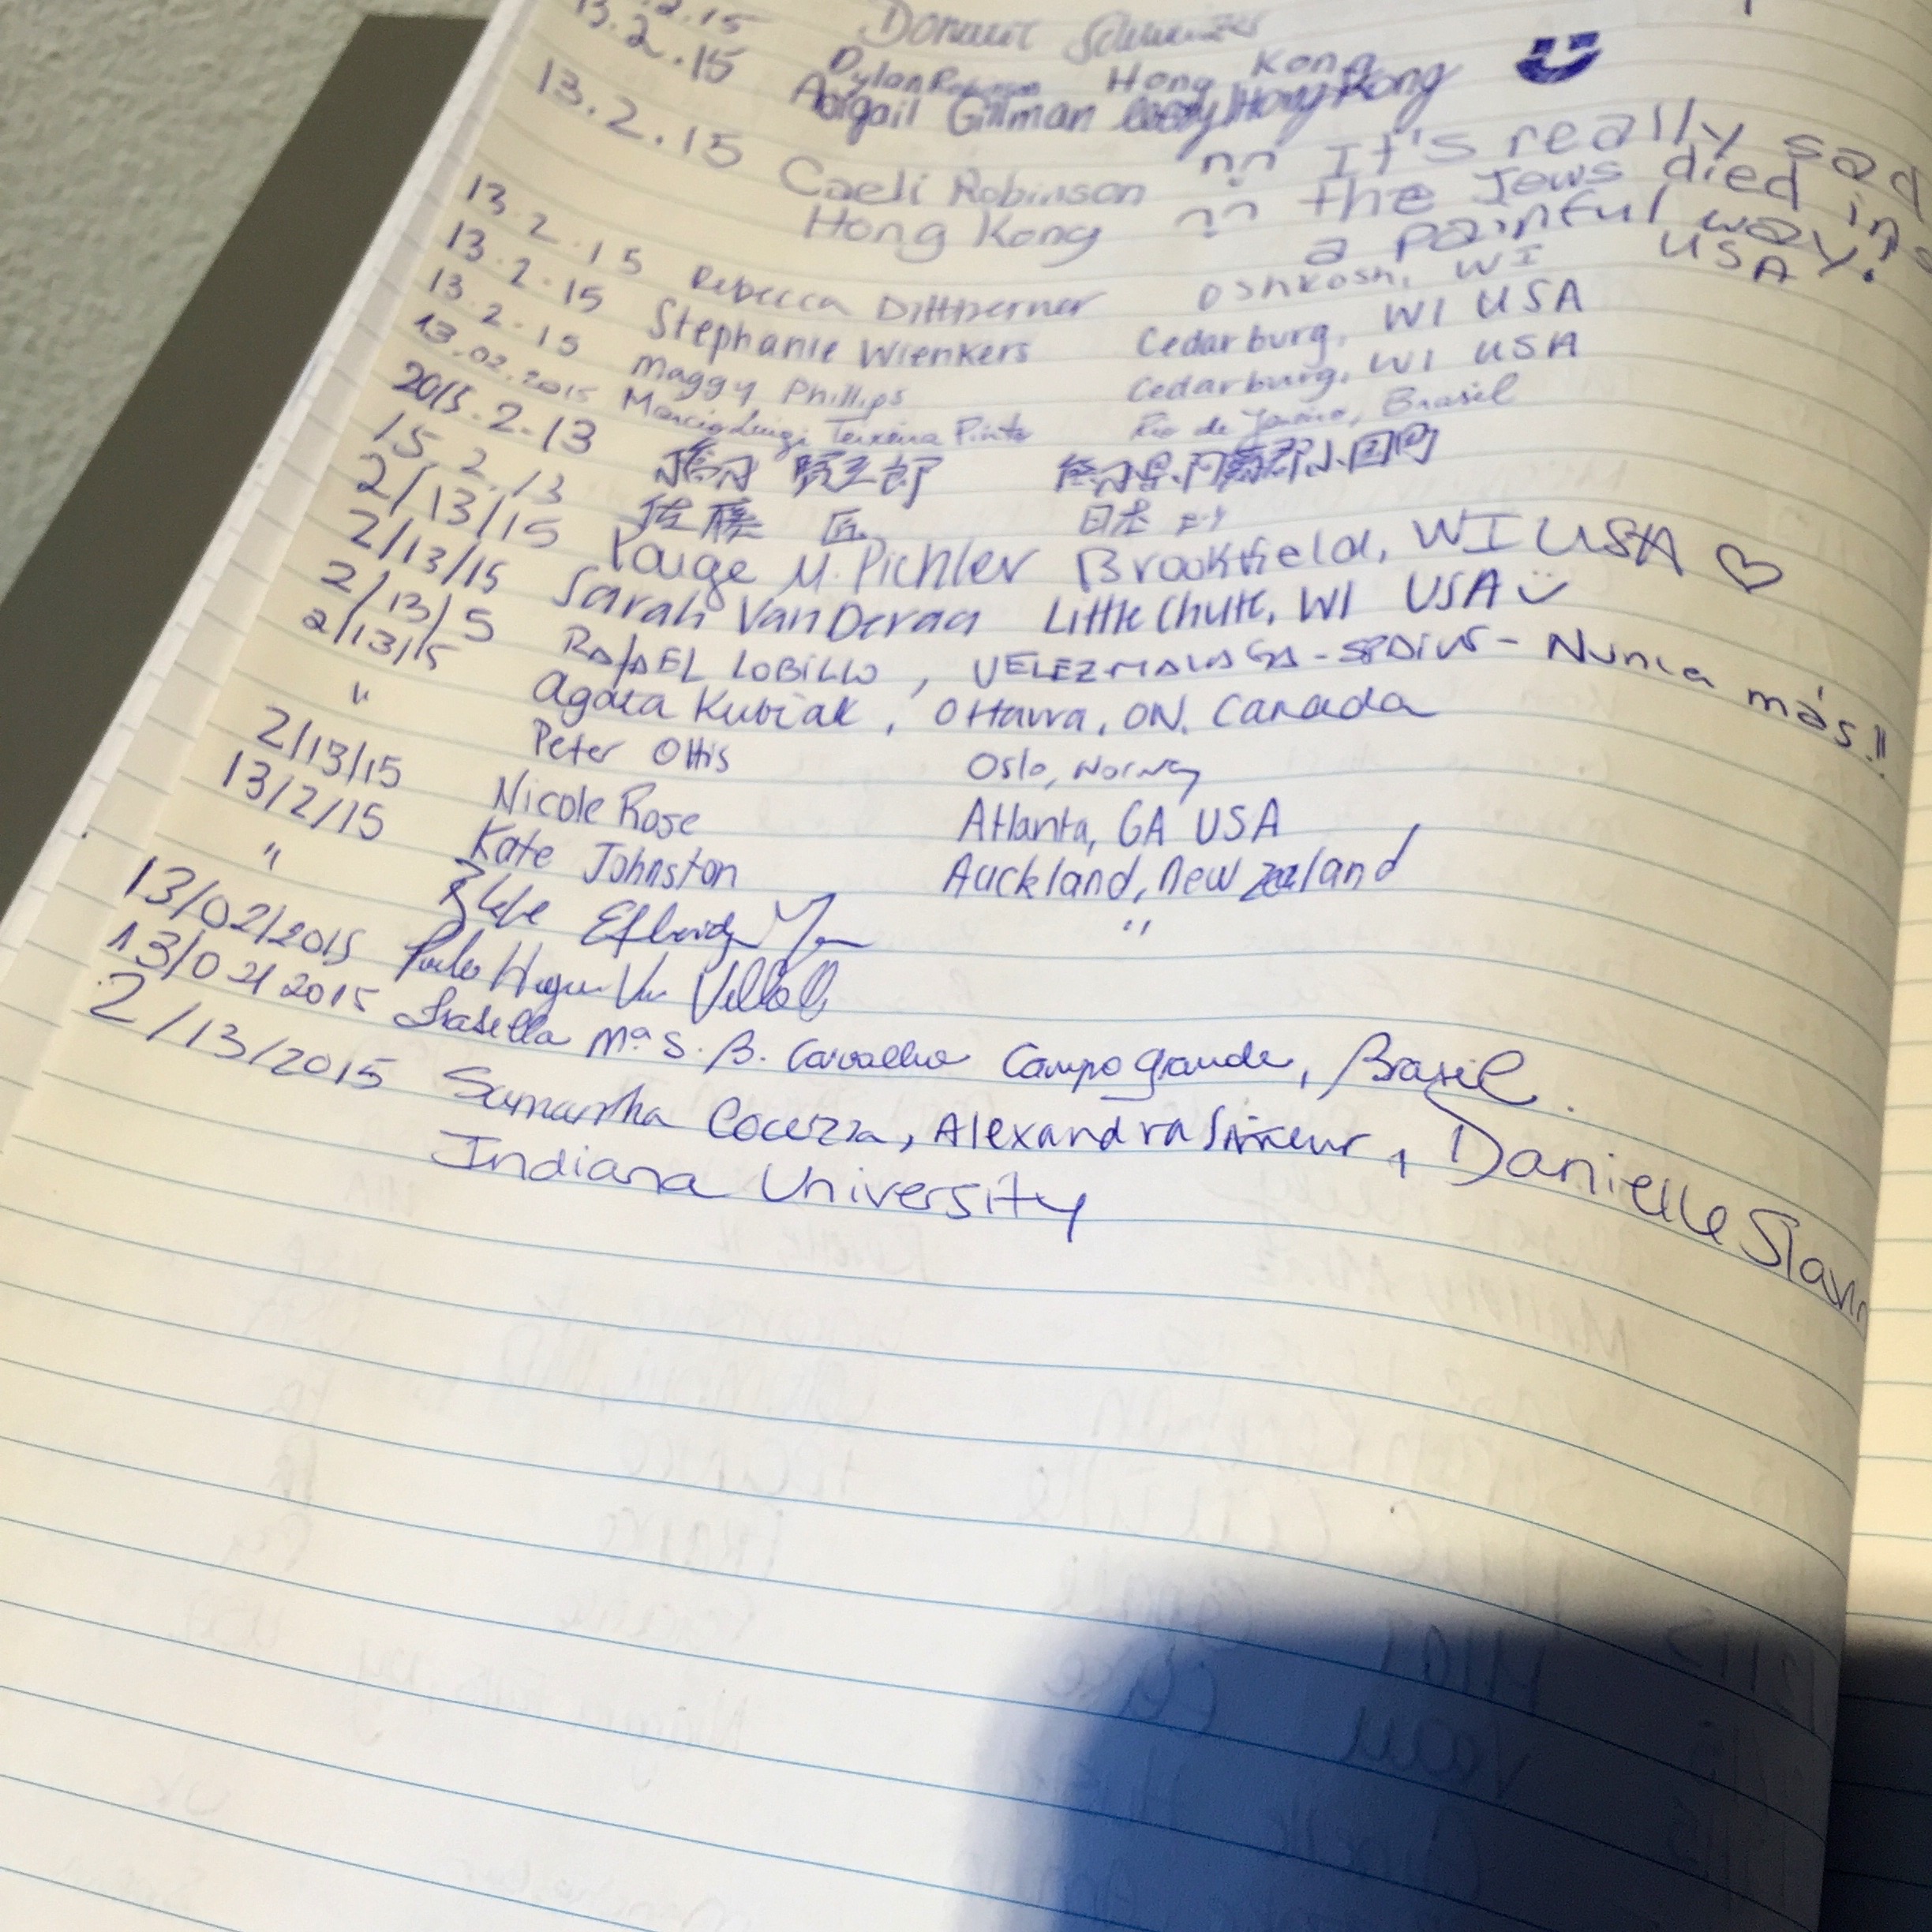 13.2.15 Dylan Robinson Hong Kong
Abigail Gillman Hong Kong
13.2.15 Caeli Robinson It's really sad
Hong Kong the Jews died in
a painful way!
13.2.15 Rebecca Oshkosh, WI USA
13.2.15 Stephanie Wienkers Cedarburg, WI USA
13.2.15 Maggy Phillips Cedarburg, WI USA
13.02.2015 Marcio Luigi Teixeira Pinto Rio de Janeiro, Brasil
2015.2.13
15.2.13 佐藤 匠 日本
2/13/15 Paige M. Pichler Brookfield, WI USA ♡
2/13/15 Sarah VanDeraa Little Chute, WI USA
2/13/5 RAFAEL LOBILLO, VELEZ MALAGA - - Nunca más!!
2/13/15 Agata Kubiak, Ottawa, ON. Canada
" Peter Ottis Oslo, Norway
2/13/15 Nicole Rose Atlanta, GA USA
13/2/15 Kate Johnston Auckland, New Zealand
" "
13/02/2015
13/02/2015 Isabella Mª S. B. Carvalho Campo grande, Brasil.
2/13/2015 Samantha Cocuzza, Alexandra, Danielle
Indiana University